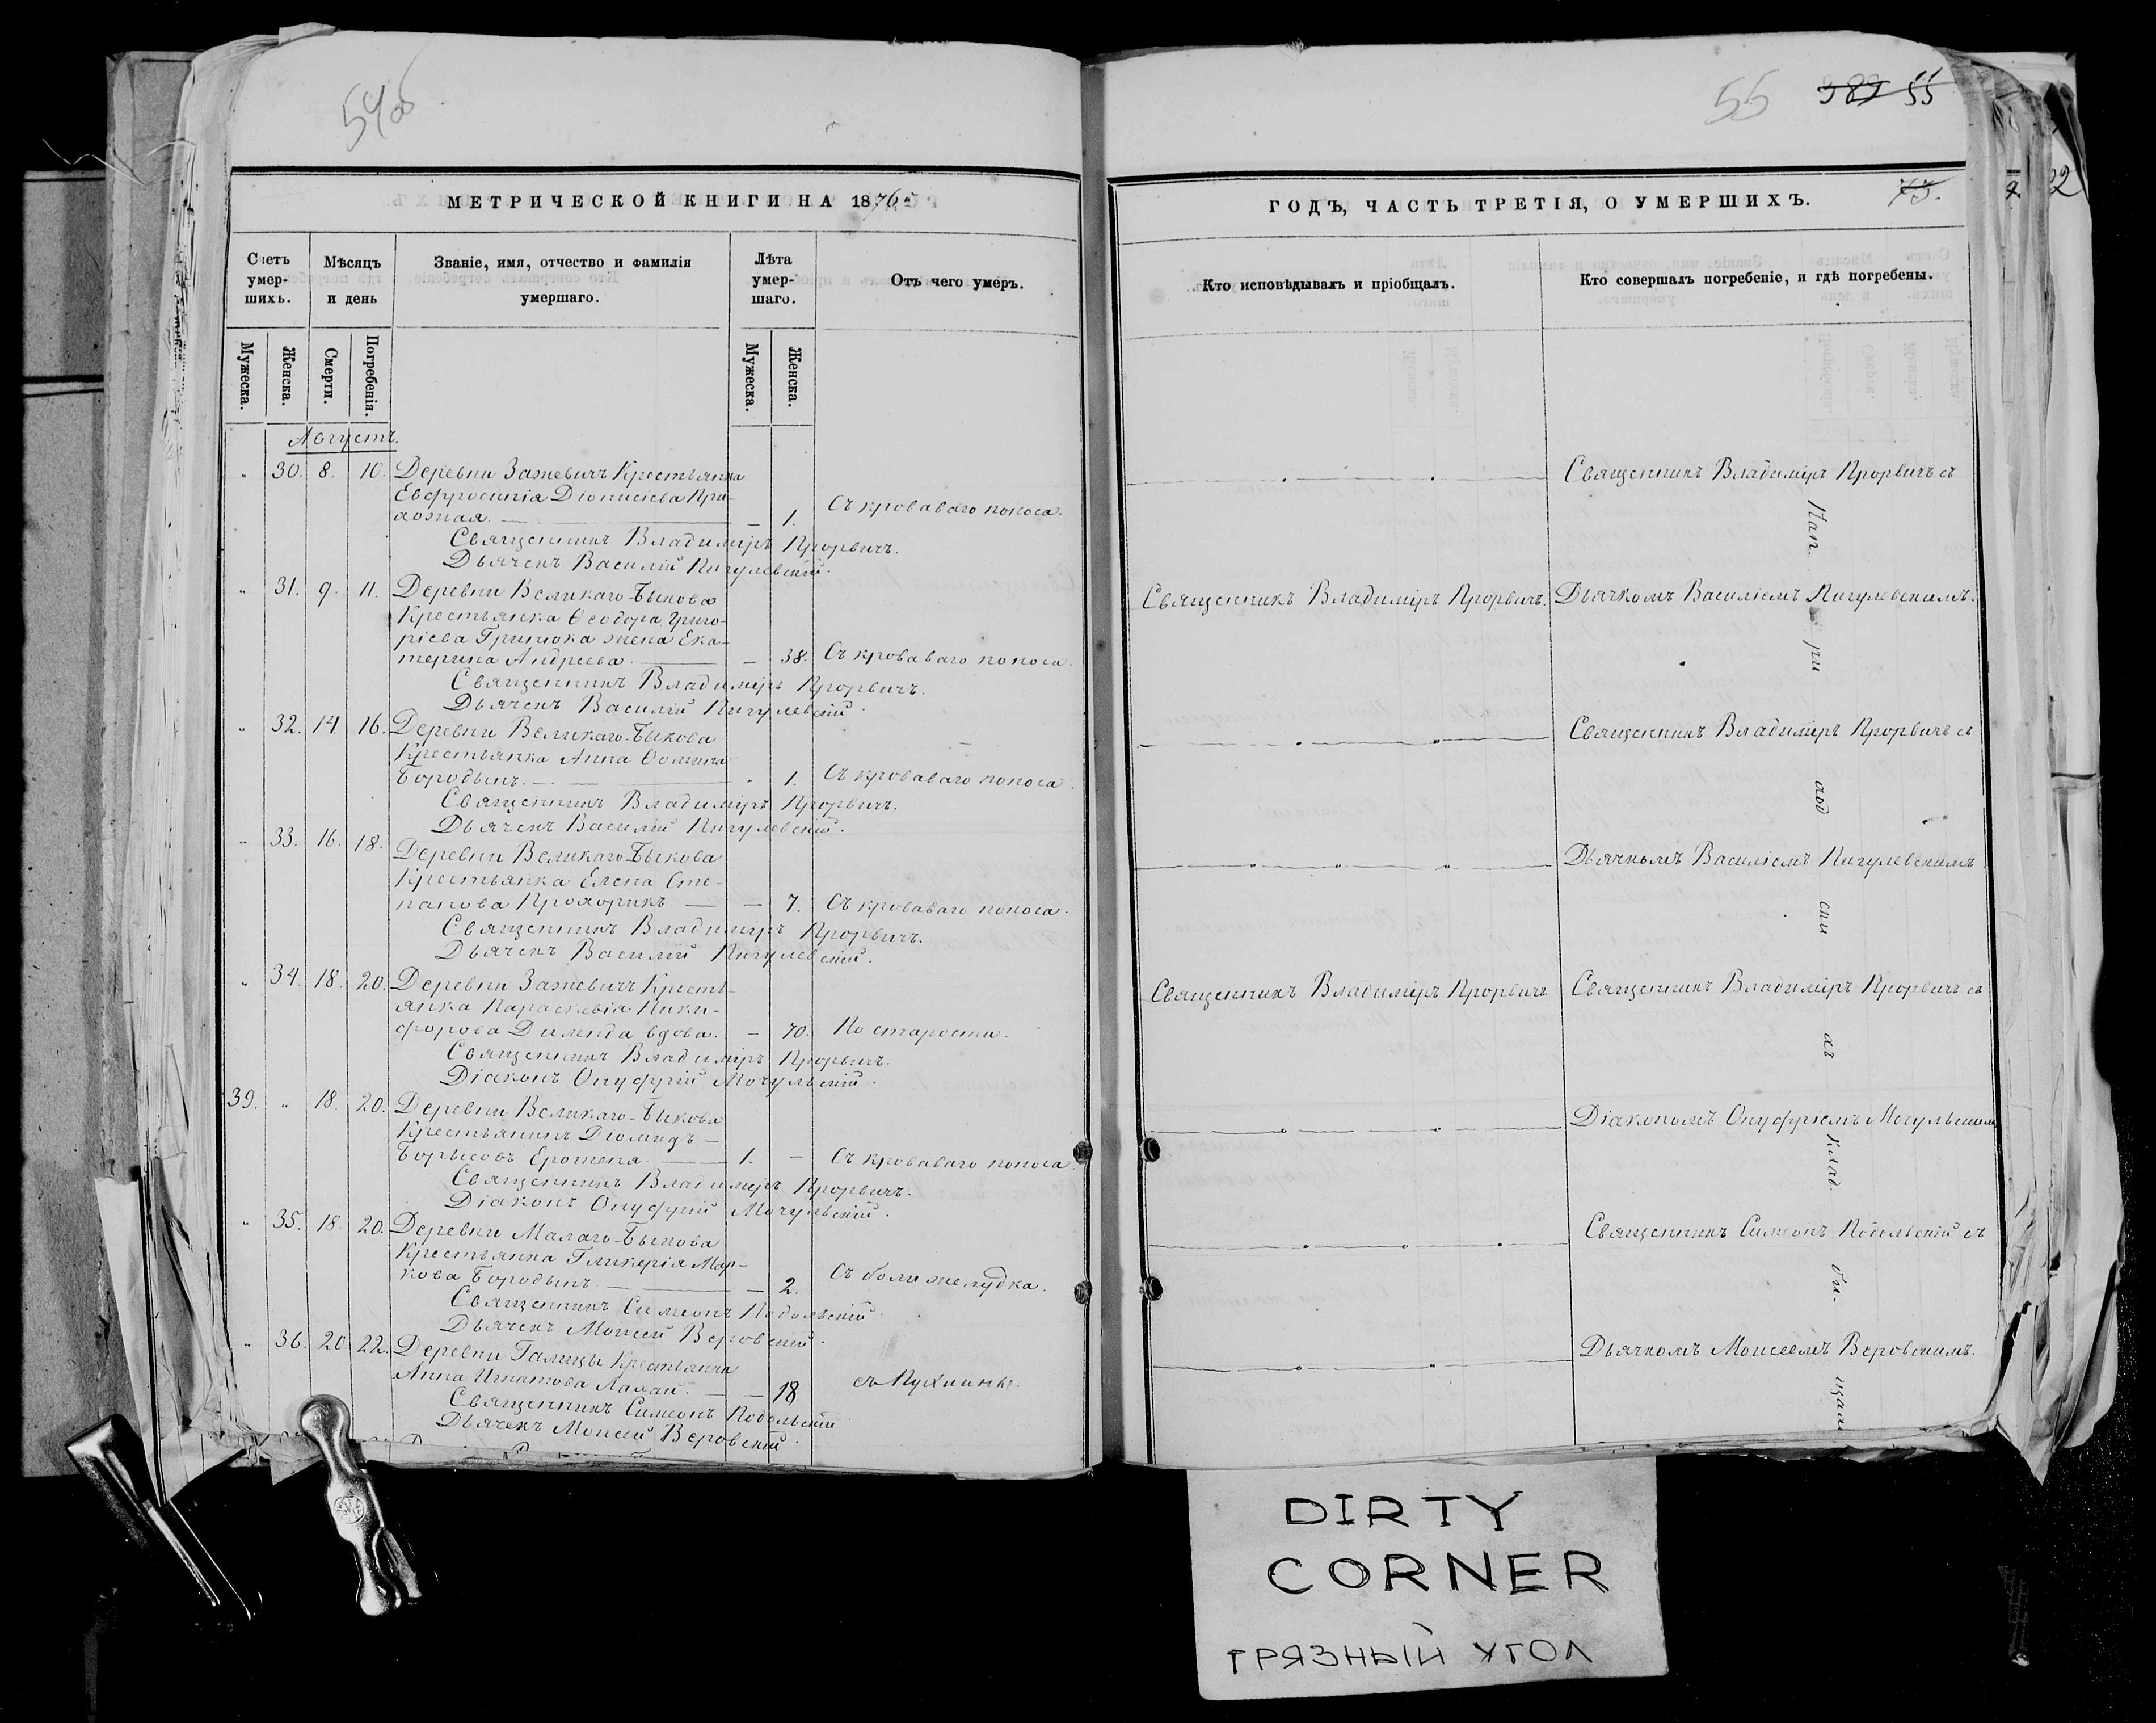 54об
МЕТРИЧЕСКОЙ КНИГИ НА 1876й
Счетъ умер-шихъ.
Мѣсяцъ и день
Званіе, имя, отчество и фамилія умершаго.
Лѣта умер-шаго.
Отъ чего умеръ.
Мужеска.
Женска.
Смерти.
Погребенія.
Мужеска.
Женска.
Августъ.
" 30. 8. 10. Деревни Зажевичъ Крестьянка
Евфросинія Діонисіева При-
хожая. — — 1. Съ кроваваго поноса.
Священникъ Владиміръ Прорвичъ.
Дьячекъ Василій Пигулевскій.
" 31. 9. 11. Деревни Великаго-Быкова
Крестьянка Ѳеодора Григо-
ріева Гринюка жена Ека-
терина Андреева. — — 38. Съ кроваваго поноса.
Священникъ Владиміръ Прорвичъ.
Дьячекъ Василій Пигулевскій.
" 32. 14. 16. Деревни Великаго-Быкова
Крестьянка Анна Ѳомина
Бородынъ. — " 1. Съ кроваваго поноса.
Священникъ Владиміръ Прорвичъ.
Дьячекъ Василій Пигулевскій.
" 33. 16. 18. Деревни Великаго-Быкова
Крестьянка Елена Сте-
панова Прохорикъ — — 7. Съ кроваваго поноса.
Священникъ Владиміръ Прорвичъ.
Дьячекъ Василій Пигулевскій.
" 34. 18. 20. Деревни Зажевичъ Кресть-
янка Параскевія Ники-
форова вдова. — 70. По старости.
Священникъ Владиміръ Прорвичъ.
Діаконъ Онуфрій Мочульскій.
39. " 18. 20. Деревни Великаго-Быкова
Крестьянинъ Діомидъ —
Борисовъ — 1. — Съ кроваваго поноса.
Священникъ Владиміръ Прорвичъ.
Діаконъ Онуфрій Мочульскій.
" 35. 18. 20. Деревни Малаго-Быкова
Крестьянка Гликерія Мар-
кова Бородынъ — — 2. Съ боли желудка.
Священникъ Симеонъ Подольскій
Дьячекъ Моисей Веровскій.
" 36. 20. 22. Деревни Галицы Крестьянка
Анна Игнатова — — 18
Священникъ Симеонъ Подольскій
Дьячекъ Моисей Веровскій.
55 389 55
ГОДЪ, ЧАСТЬ ТРЕТІЯ, О УМЕРШИХЪ.
75.
Кто исповѣдывалъ и пріобщалъ.
Кто совершалъ погребеніе, и гдѣ погребены.
Священникъ Владиміръ Прорвичъ съ
На п.
Священникъ Владиміръ Прорвичъ. Дьячкомъ Василіемъ Пигулевскимъ.
ри
Священникъ Владиміръ Прорвичъ съ
ход
Дьячкомъ Василіемъ Пигулевскимъ
ски
Священникъ Владиміръ Прорвичъ Священникъ Владиміръ Прорвичъ съ
хъ
Діакономъ Онуфріемъ Мочульским
клад.
Священникъ Симеонъ Подольскій съ
би.
Дьячкомъ Моисеемъ Веровскимъ.
щахъ
22
DIRTY
CORNER
ГРЯЗНЫЙ УГОЛ